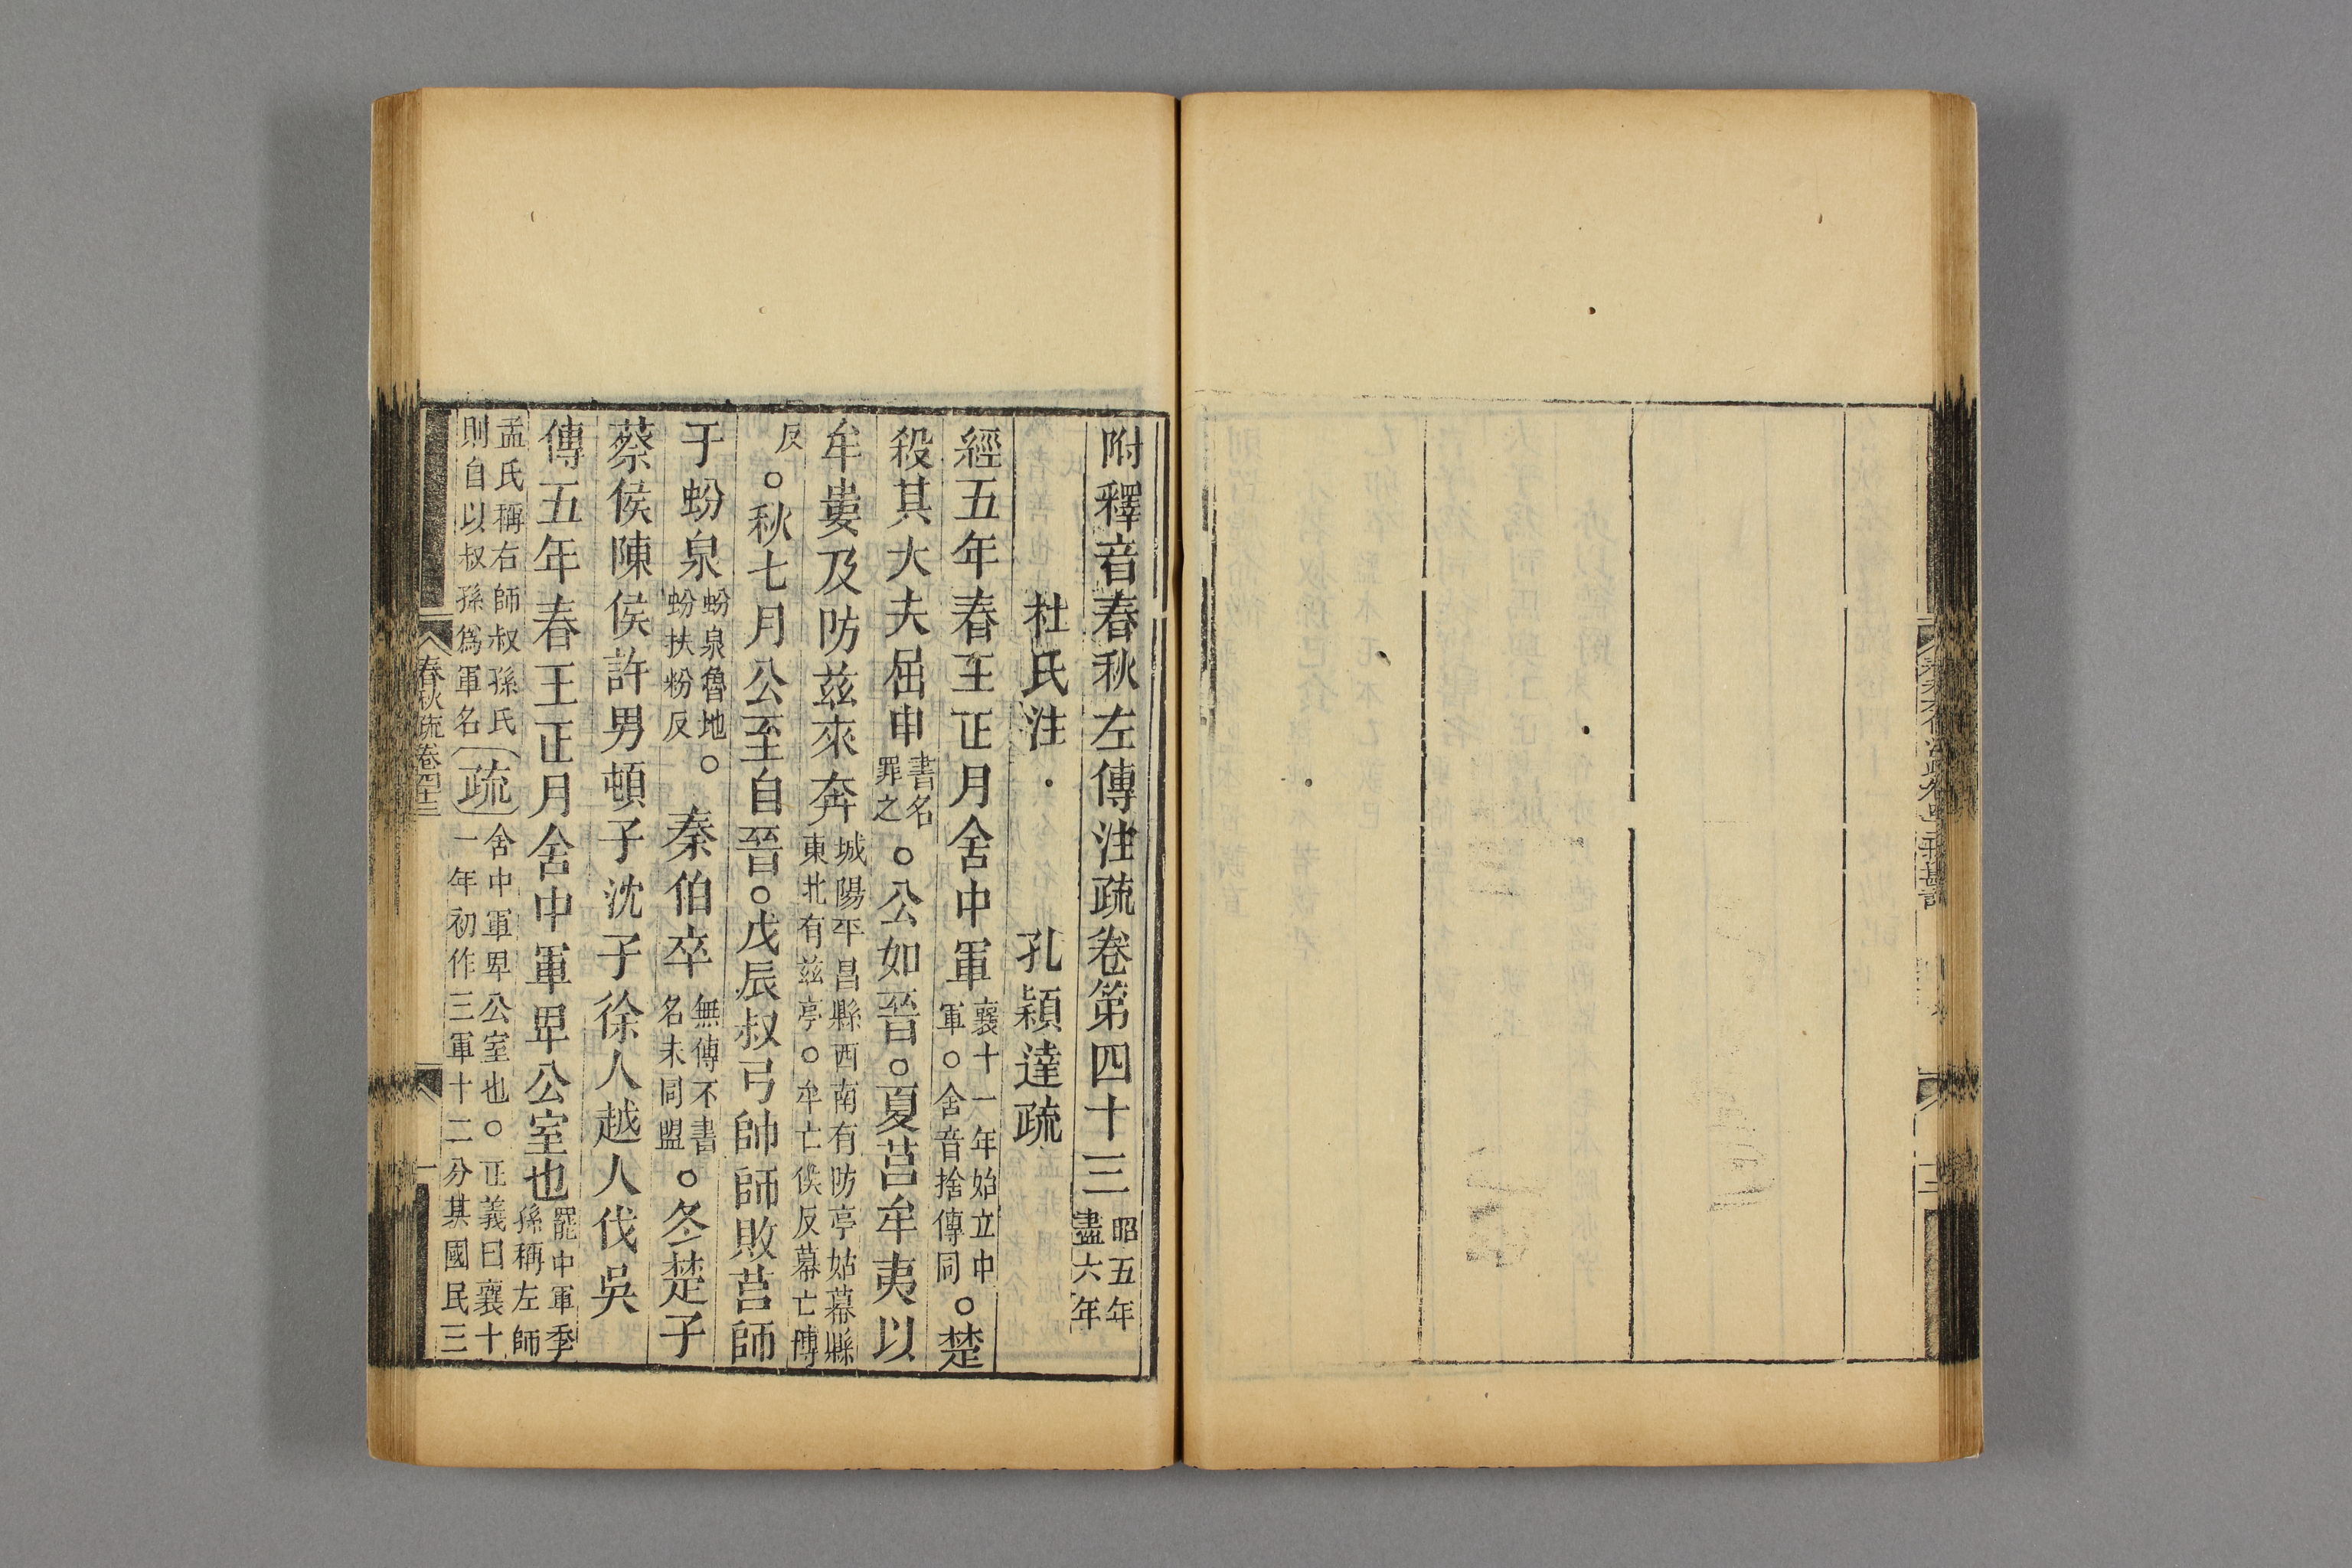 附釋音春秋左傳注疏卷第四十三 昭五年盡六年
杜氏注 孔穎達疏
經五年春王正月舍中軍 襄十一年始立中軍○舍音捨傳同 ○楚
殺其大夫屈申 書名罪之 ○公如晉○夏莒牟夷以
牟婁及防茲來奔 城陽平昌縣西南有防亭姑幕縣東北有茲亭○牟亡侯反幕亡博
反 ○秋七月公至自晉○戊辰叔弓帥師敗莒師
于蚡泉 蚡泉魯地蚡扶粉反 ○秦伯卒 無傳不書名未同盟 ○冬楚子
蔡侯陳侯許男頓子沈子徐人越人伐吳
傳五年春王正月舍中軍卑公室也 罷中軍季孫稱左師
孟氏稱右師叔孫氏則自以叔孫爲軍名 疏 舍中軍卑公室也○正義曰襄十一年初作三軍十二分其國民三
春秋疏卷四十三
一